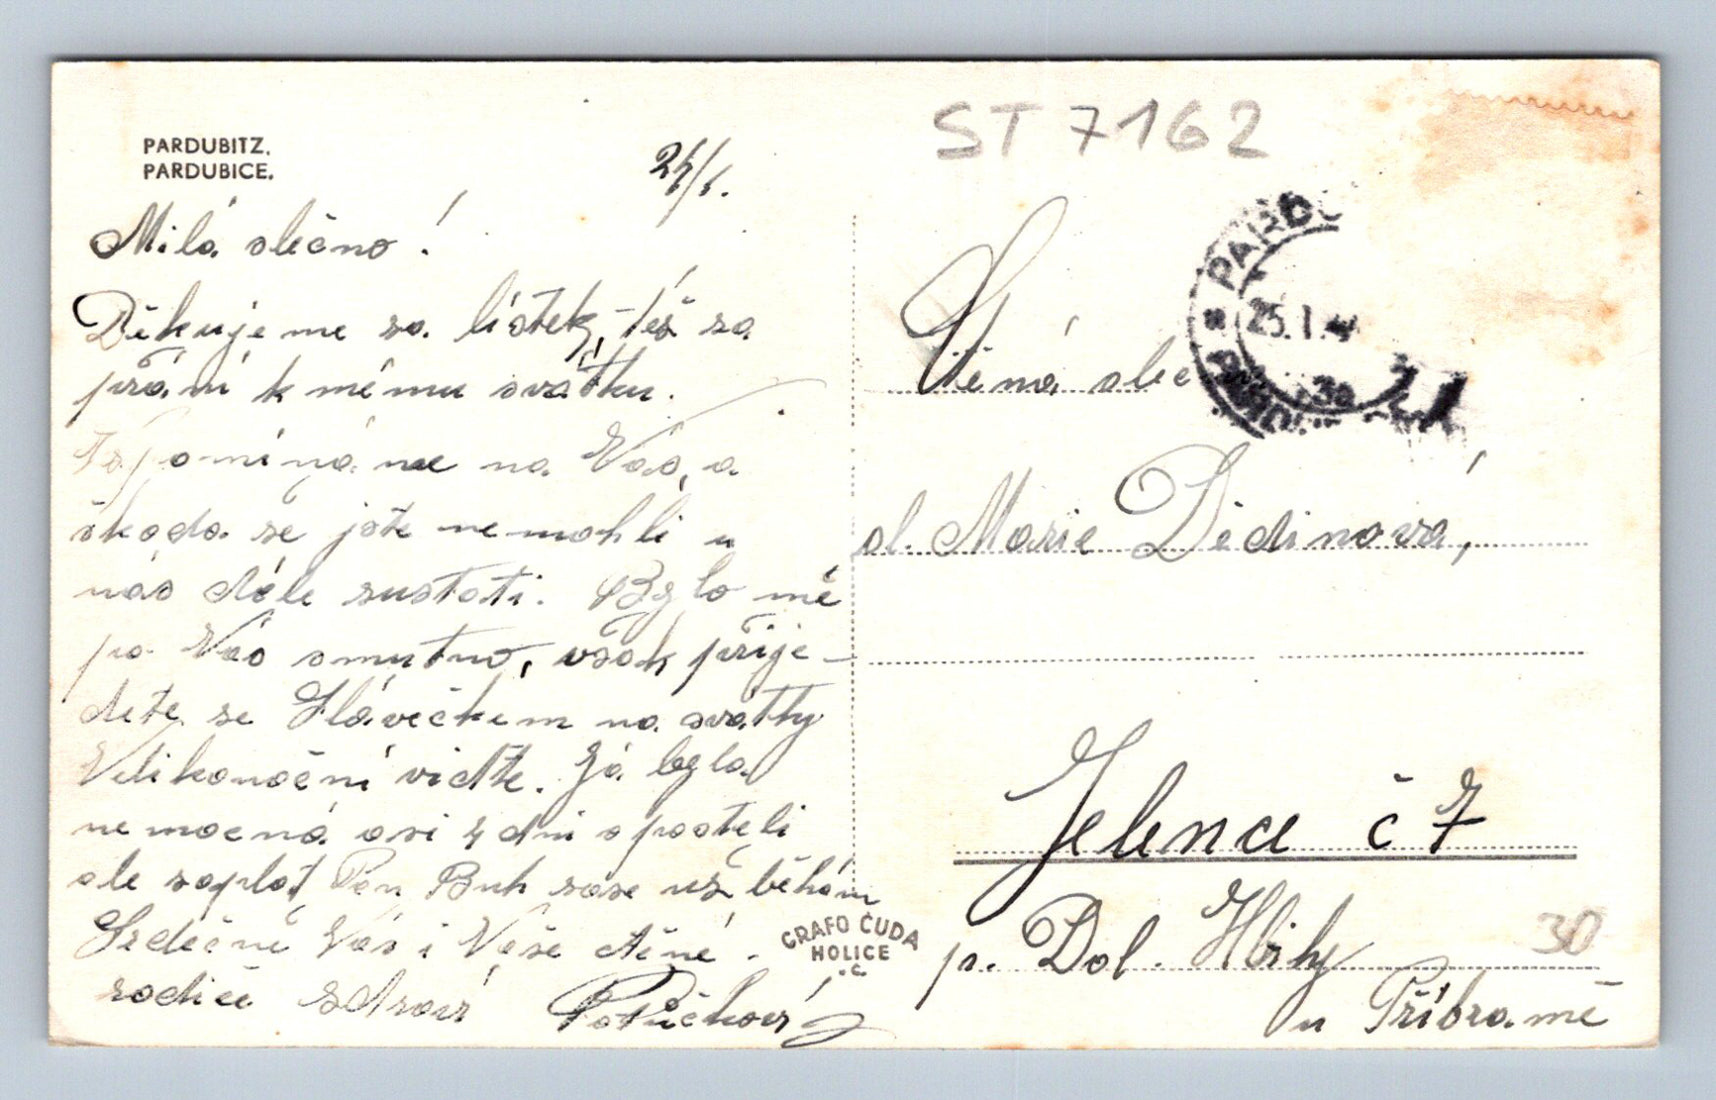 PARDUBITZ.
PARDUBICE.
ST 7162
Milá slečno!
Děkujeme za lístek, též za
přání k mému svátku.
Vzpomínáme na Vás, a
škoda že jste nemohli u
nás déle zustati. Bylo mě
po Vás smutno, však přije-
dete se Slávečkem na svátky
Velikonoční viďte. Já byla
nemocná asi 4 dni v posteli
ale zaplať Pán Buh zase už běhám
Srdečně Vás i Vaše ctěné
rodiče zdraví Potůčkovi
GRAFO ČUDA
HOLICE
PARDU
25. I. 4
Ctěná sleč
sl. Marie Dědinová,
Jelence č 7
p. Dol. Hbity
u Příbramě
30